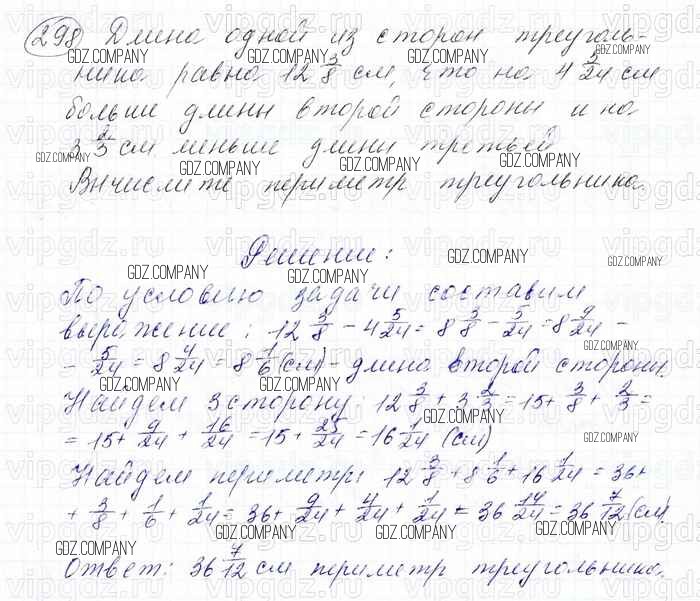 298 Длина одной из сторон треуголь-
ника равна 12 3/8 см, что на 4 5/24 см
больше длины второй стороны и на
3 2/3 см меньше длины третьей
Вычислите периметр треугольника.
Решение:
По условию задачи составим
выражение: 12 3/8 - 4 5/24 = 8 3/8 - 5/24 = 8 9/24 -
- 5/24 = 8 4/24 = 8 1/6 (см) - длина второй стороны.
Найдем 3 сторону: 12 3/8 + 3 2/3 = 15 + 3/8 + 2/3 =
= 15 + 9/24 + 16/24 = 15 + 25/24 = 16 1/24 (см)
Найдем периметр: 12 3/8 + 8 1/6 + 16 1/24 = 36 +
+ 3/8 + 1/6 + 1/24 = 36 + 9/24 + 4/24 + 1/24 = 36 14/24 = 36 7/12 (см)
Ответ: 36 7/12 см периметр треугольника.
GDZ.COMPANY
vipgdz.ru